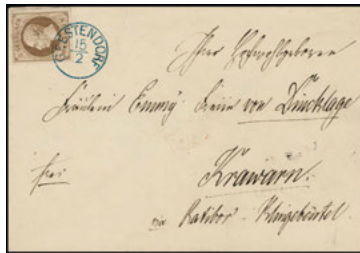 GEESTENDORF
15
2
Ihro Hochwohlgeboren
Fräulein Emmy Freiin von Dincklage
frei
Krawarn.
via Ratibor - Klingebeutel